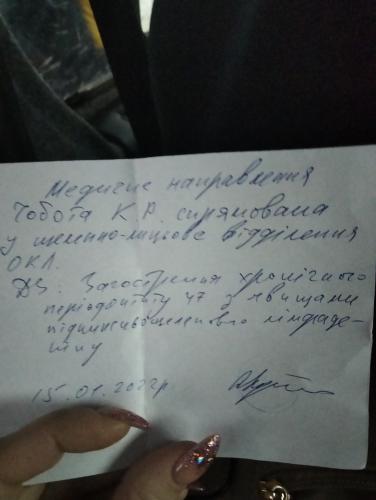 Медичне направлення
Чобота К.Р. спрямована
у щелепно-лицьове відділення
ОКЛ.
ДЗ. Загострення хронічного
періодонтиту 47 з явищами
підщелепного лімфаде-
ніту
15.01.2022р.